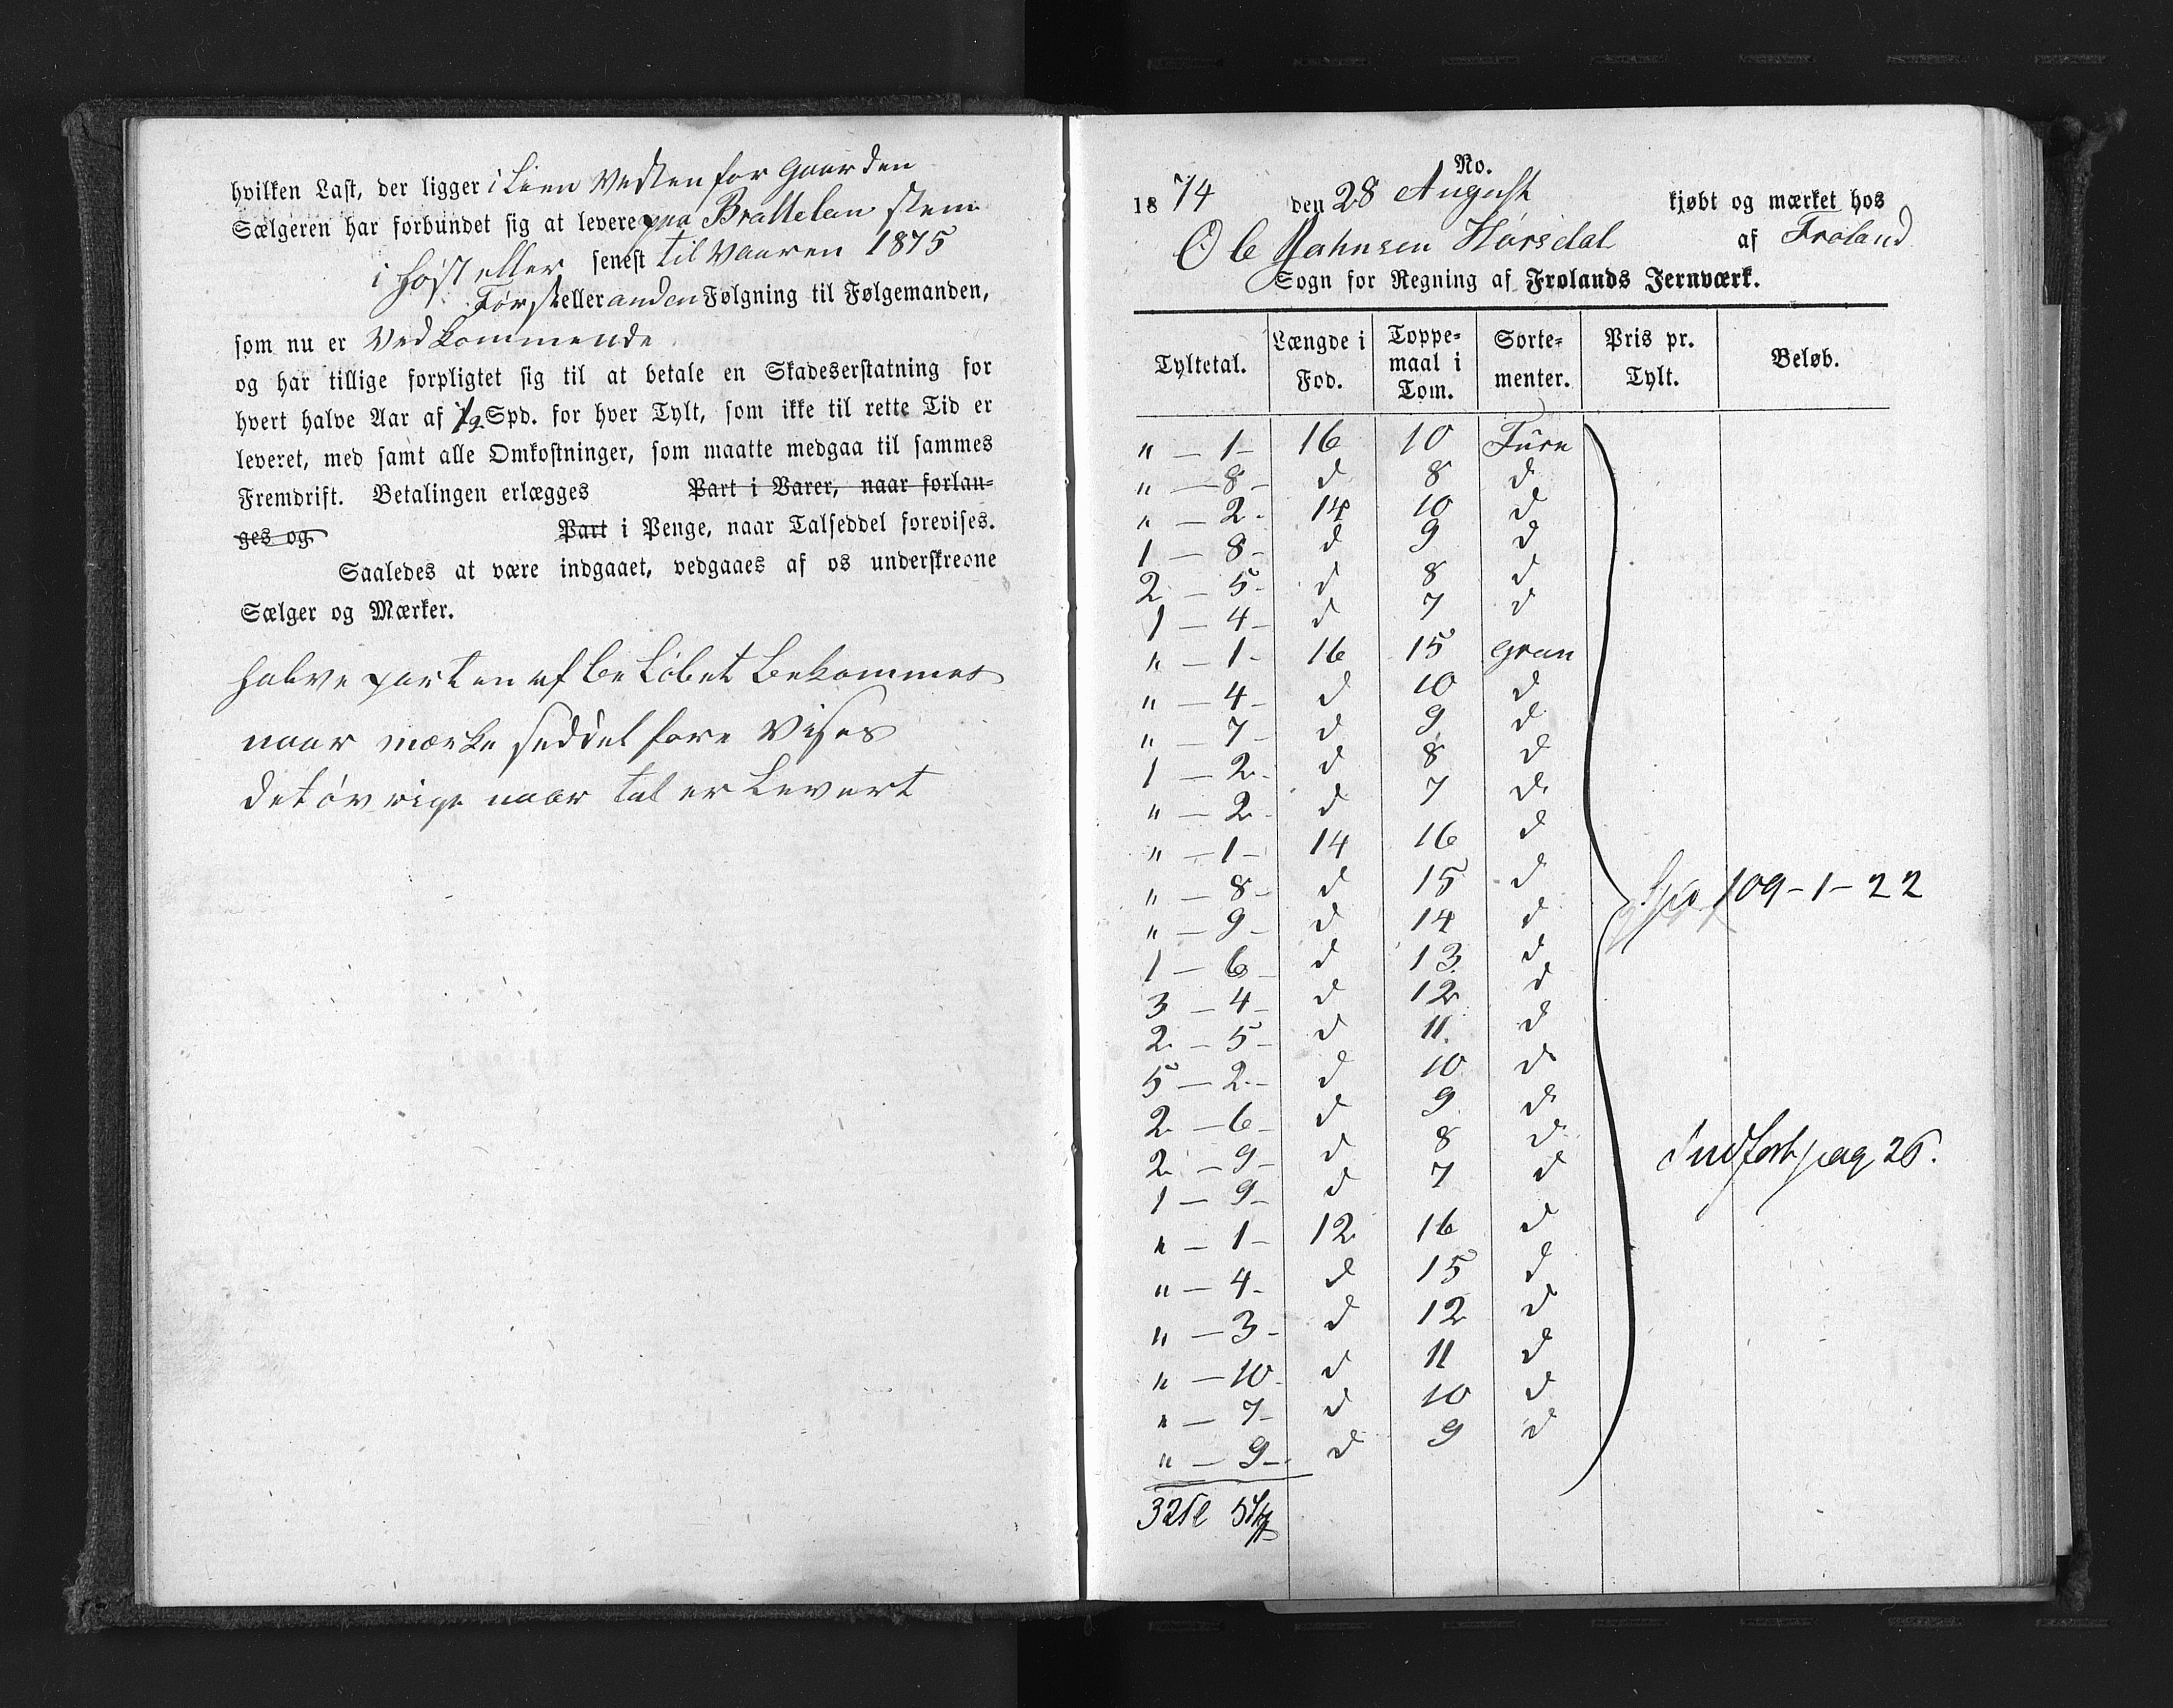 hvilken Last, der ligger i Lien Vesten for Gaarden
Sælgeren har forbundet sig at levere paa Brattelan stem
i Høst eller senest til Vaaren 1875
Først eller anden Følgning til Følgemanden,
som nu er Vedkommende
og har tillige forpligtet sig til at betale en Skadeserstatning for
hvert halve Aar af 1/2 Spd. for hver Tylt, som ikke til rette Tid er
leveret, med samt alle Omkostninger, som maatte medgaa til sammes
Fremdrift. Betalingen erlægges Part i Varer, naar forlan-
ges og Part i Penge, naar Talseddel forevises.
Saaledes at være indgaaet, vedgaaes af os underskrevne
Sælger og Mærker.
halve parten af beløbet bekommes
naar mærke seddel fore Vises
det øvrige naar tal er Levert
No.
1874 den 28 August kjøbt og mærket hos
Ole Jahnsen Hørsdal af Froland
Sogn for Regning af Frolands Jernværk.
Tyltetal. Længde i Fod. Toppe-maal i Tom. Sorte-menter. Pris pr. Tylt. Beløb.
" — 1 — 16 10 Furu
" — 8 — d 8 d
" — 2 — 14 10 d
1 — 8 — d 9 d
2 — 5 — d 8 d
1 — 4 — d 7 d
" — 1 — 16 15 gran
" — 4 — d 10 d
" — 7 — d 9 d
1 — 2 — d 8 d
" — 2 — d 7 d
" — 1 — 14 16 d
" — 8 — d 15 d
109 - 1 - 22
" — 9 — d 14 d
1 — 6 — d 13 d
3 — 4 — d 12 d
2 — 5 — d 11 d
5 — 2 — d 10 d
2 — 6 — d 9 d
2 — 9 — d 8 d
Indført pag 26.
1 — 9 — d 7 d
" — 1 — 12 16 d
" — 4 — d 15 d
" — 3 — d 12 d
" — 10 — d 11 d
" — 7 — d 10 d
" — 9 — d 9 d
32 Tl 5 Stk